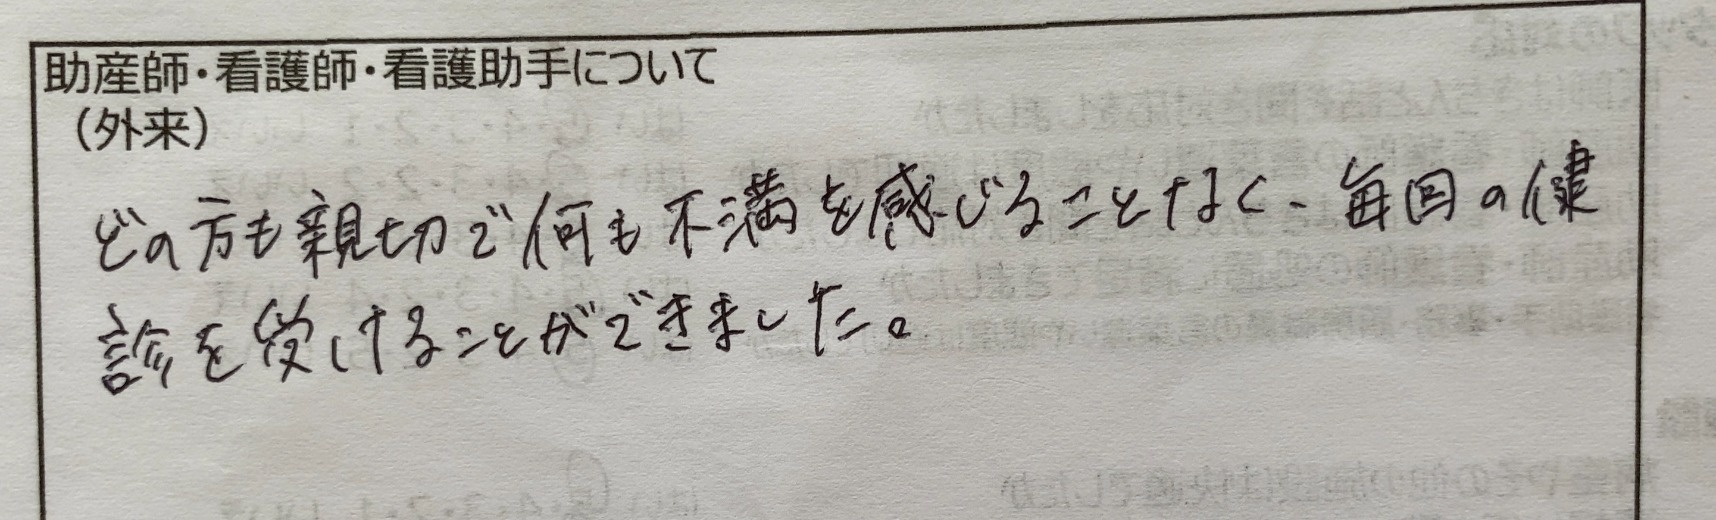 助産師・看護師・看護助手について
（外来）
どの方も親切で何も不満を感じることなく、毎回の健
診を受けることができました。